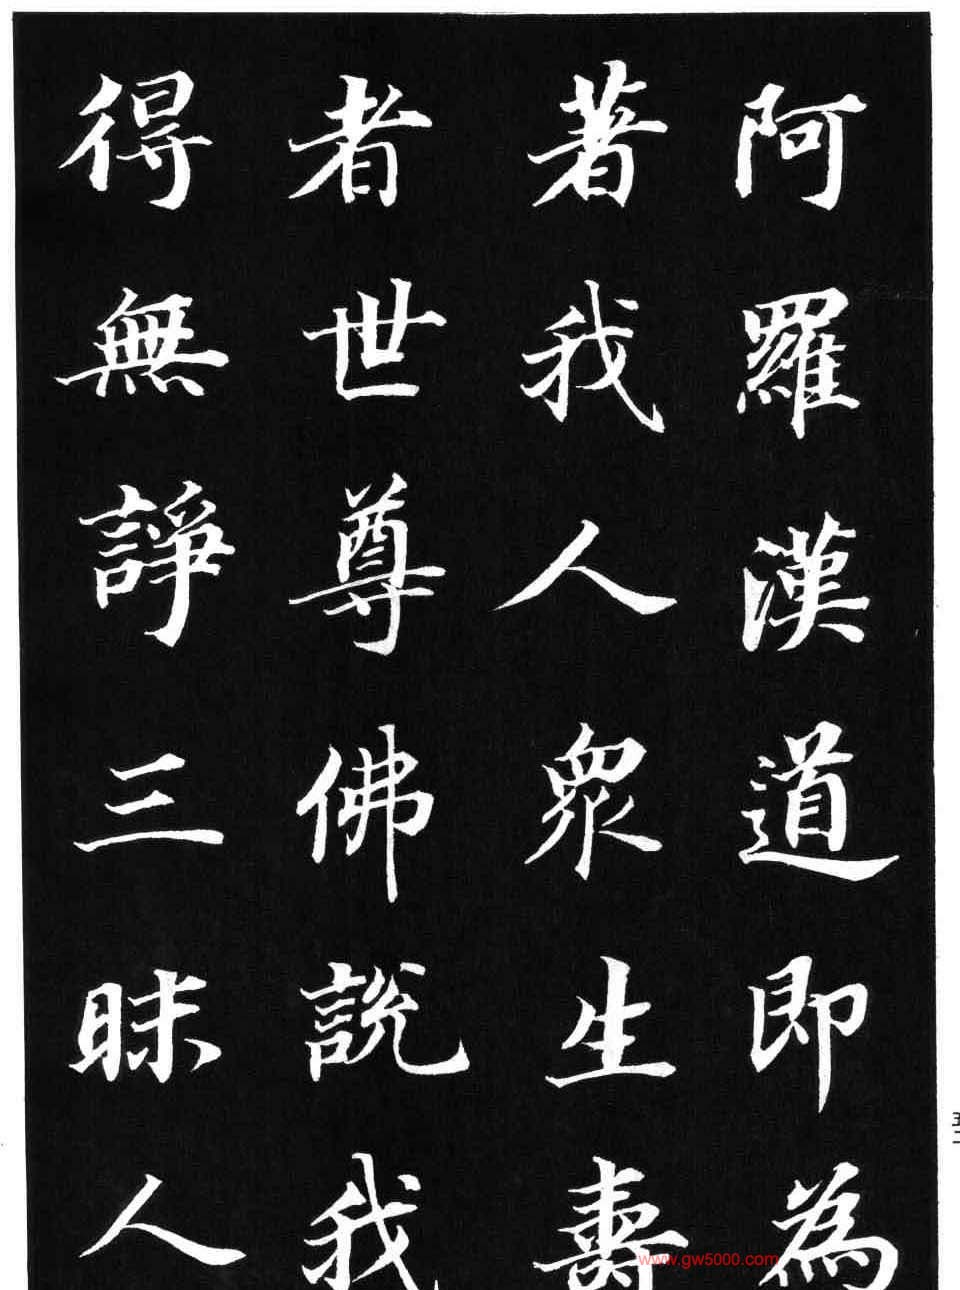 阿羅漢道即為
著我人眾生壽
者世尊佛說我
得無諍三昧人
www.gw5000.com